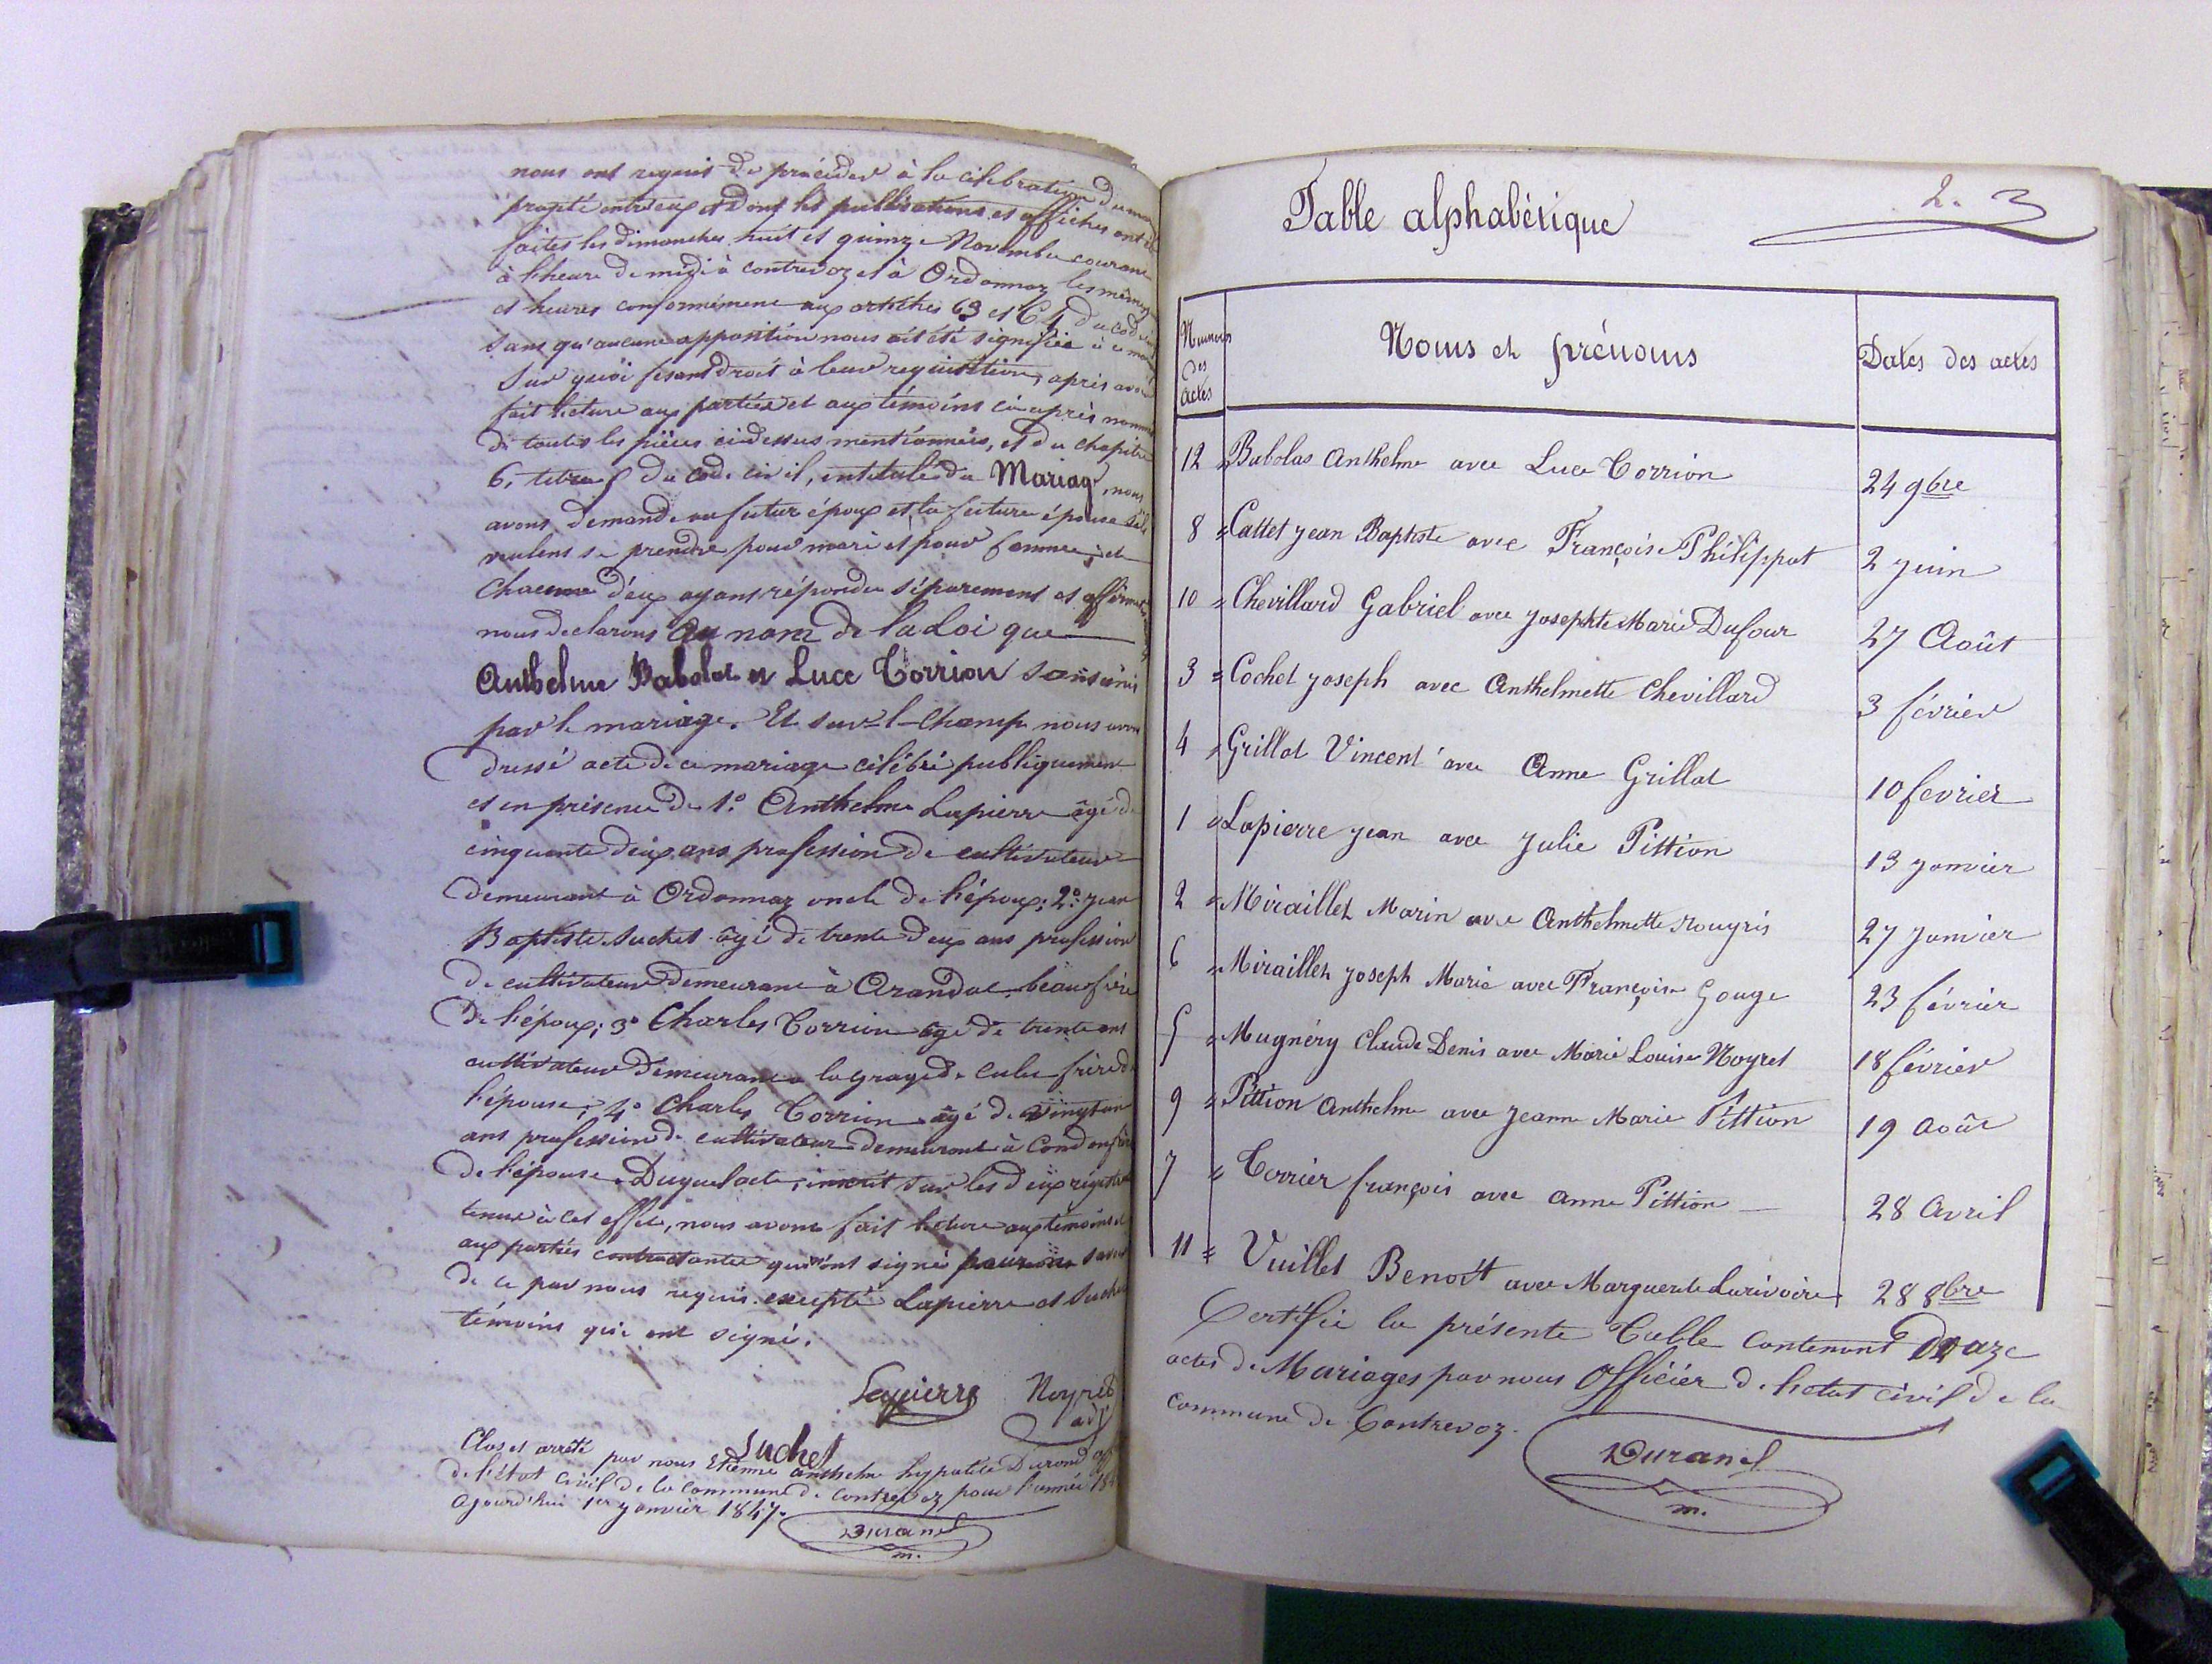 nous ont requis de procéder à la célébration du
projeté entr'eux et dont les publications et affiches ont été
faites les dimanches huit et quinze Novembre courant
à l'heure de midi à contrevoz et à Ordonnaz les mêmes
et heures conformément aux articles 63 et 64 du code
Sans qu'aucune opposition nous ait été signifiée à ce
Sur quoi fesant droit à leur requisition, après avoir
fait lecture aux parties et aux témoins ci-après nommés
de toutes les pièces ci-dessus mentionnées, et du chapitre
6, titre 5 du code civil, intitulé du Mariage, nous
avons demandé au futur époux et la future épouse s'ils
veulent se prendre pour mari et pour femme; et
chacun d'eux ayant répondu séparement et affirmativement
nous declarons au nom de la Loi que
Anthelme Babolat et Luce Torrion sont unis
par le mariage. Et sur-l-Champ nous avons
dressé acte de ce mariage célébré publiquement
et en présence de 1.° Anthelme Lapierre âgé de
cinquante deux ans profession de cultivateur
demeurant à Ordonnaz oncle de l'époux; 2.° jean
Baptiste Suchet âgé de trente deux ans profession
de cultivateur demeurant à Arandas beaufrère
de l'époux; 3° Charles Torrion âgé de trente ans
cultivateur demeurant à la frère de
l'épouse; 4° Charles Torrion âgé de
ans profession de cultivateur demeurant à Condon
de l'épouse. Duquel acte, inscrit sur les deux registres
tenus à cet effet, nous avons fait lecture aux témoins et
aux parties contractantes qui n'ont signé pour ne savoir
de ce par nous requis excepté Lapierre et Suchet
témoins qui ont signé.
Lapierre Neyret
adj
Suchet
Clos et arrêté par nous Etienne anthelme hypolite Durand off
de l'état civil de la commune de contrevoz pour l'année 18
ajourd'hui 1er janvier 1847.
Durand
m.
Table alphabétique
2. 3
Numéros des actes
Noms et prénoms
Dates des actes
12 " Babolas Anthelme avec Luce Torrion 24 9bre
8 " Cattet jean Baptiste avec Françoise Philippot 2 juin
10 " Chevillard Gabriel avec josephte Marie Dufour 27 Août
3 " Cochet joseph avec Anthelmette Chevillard 3 février
4 " Grillot Vincent avec Anne Grillat 10 fevrier
1 " Lapierre jean avec Julie Pittion 13 janvier
2 " Miraillet Marin avec Anthelmette rougris 27 janvier
6 " Miraillet joseph Marie avec Françoise Gouge 23 février
5 " Mugnéry Claude Denis avec Marie Louise Noyret 18 février
9 " Pittion Anthelme avec jeanne Marie Pittion 19 Août
7 " Torrier françois avec anne Pittion 28 Avril
11 " Vuillet Benoît avec Marguerite Larivoire 28 8bre
Certifié la présente Table contenant Douze
actes de Mariages par nous Officier de l'etat civil de la
commune de Contrevoz.
Durand
m.